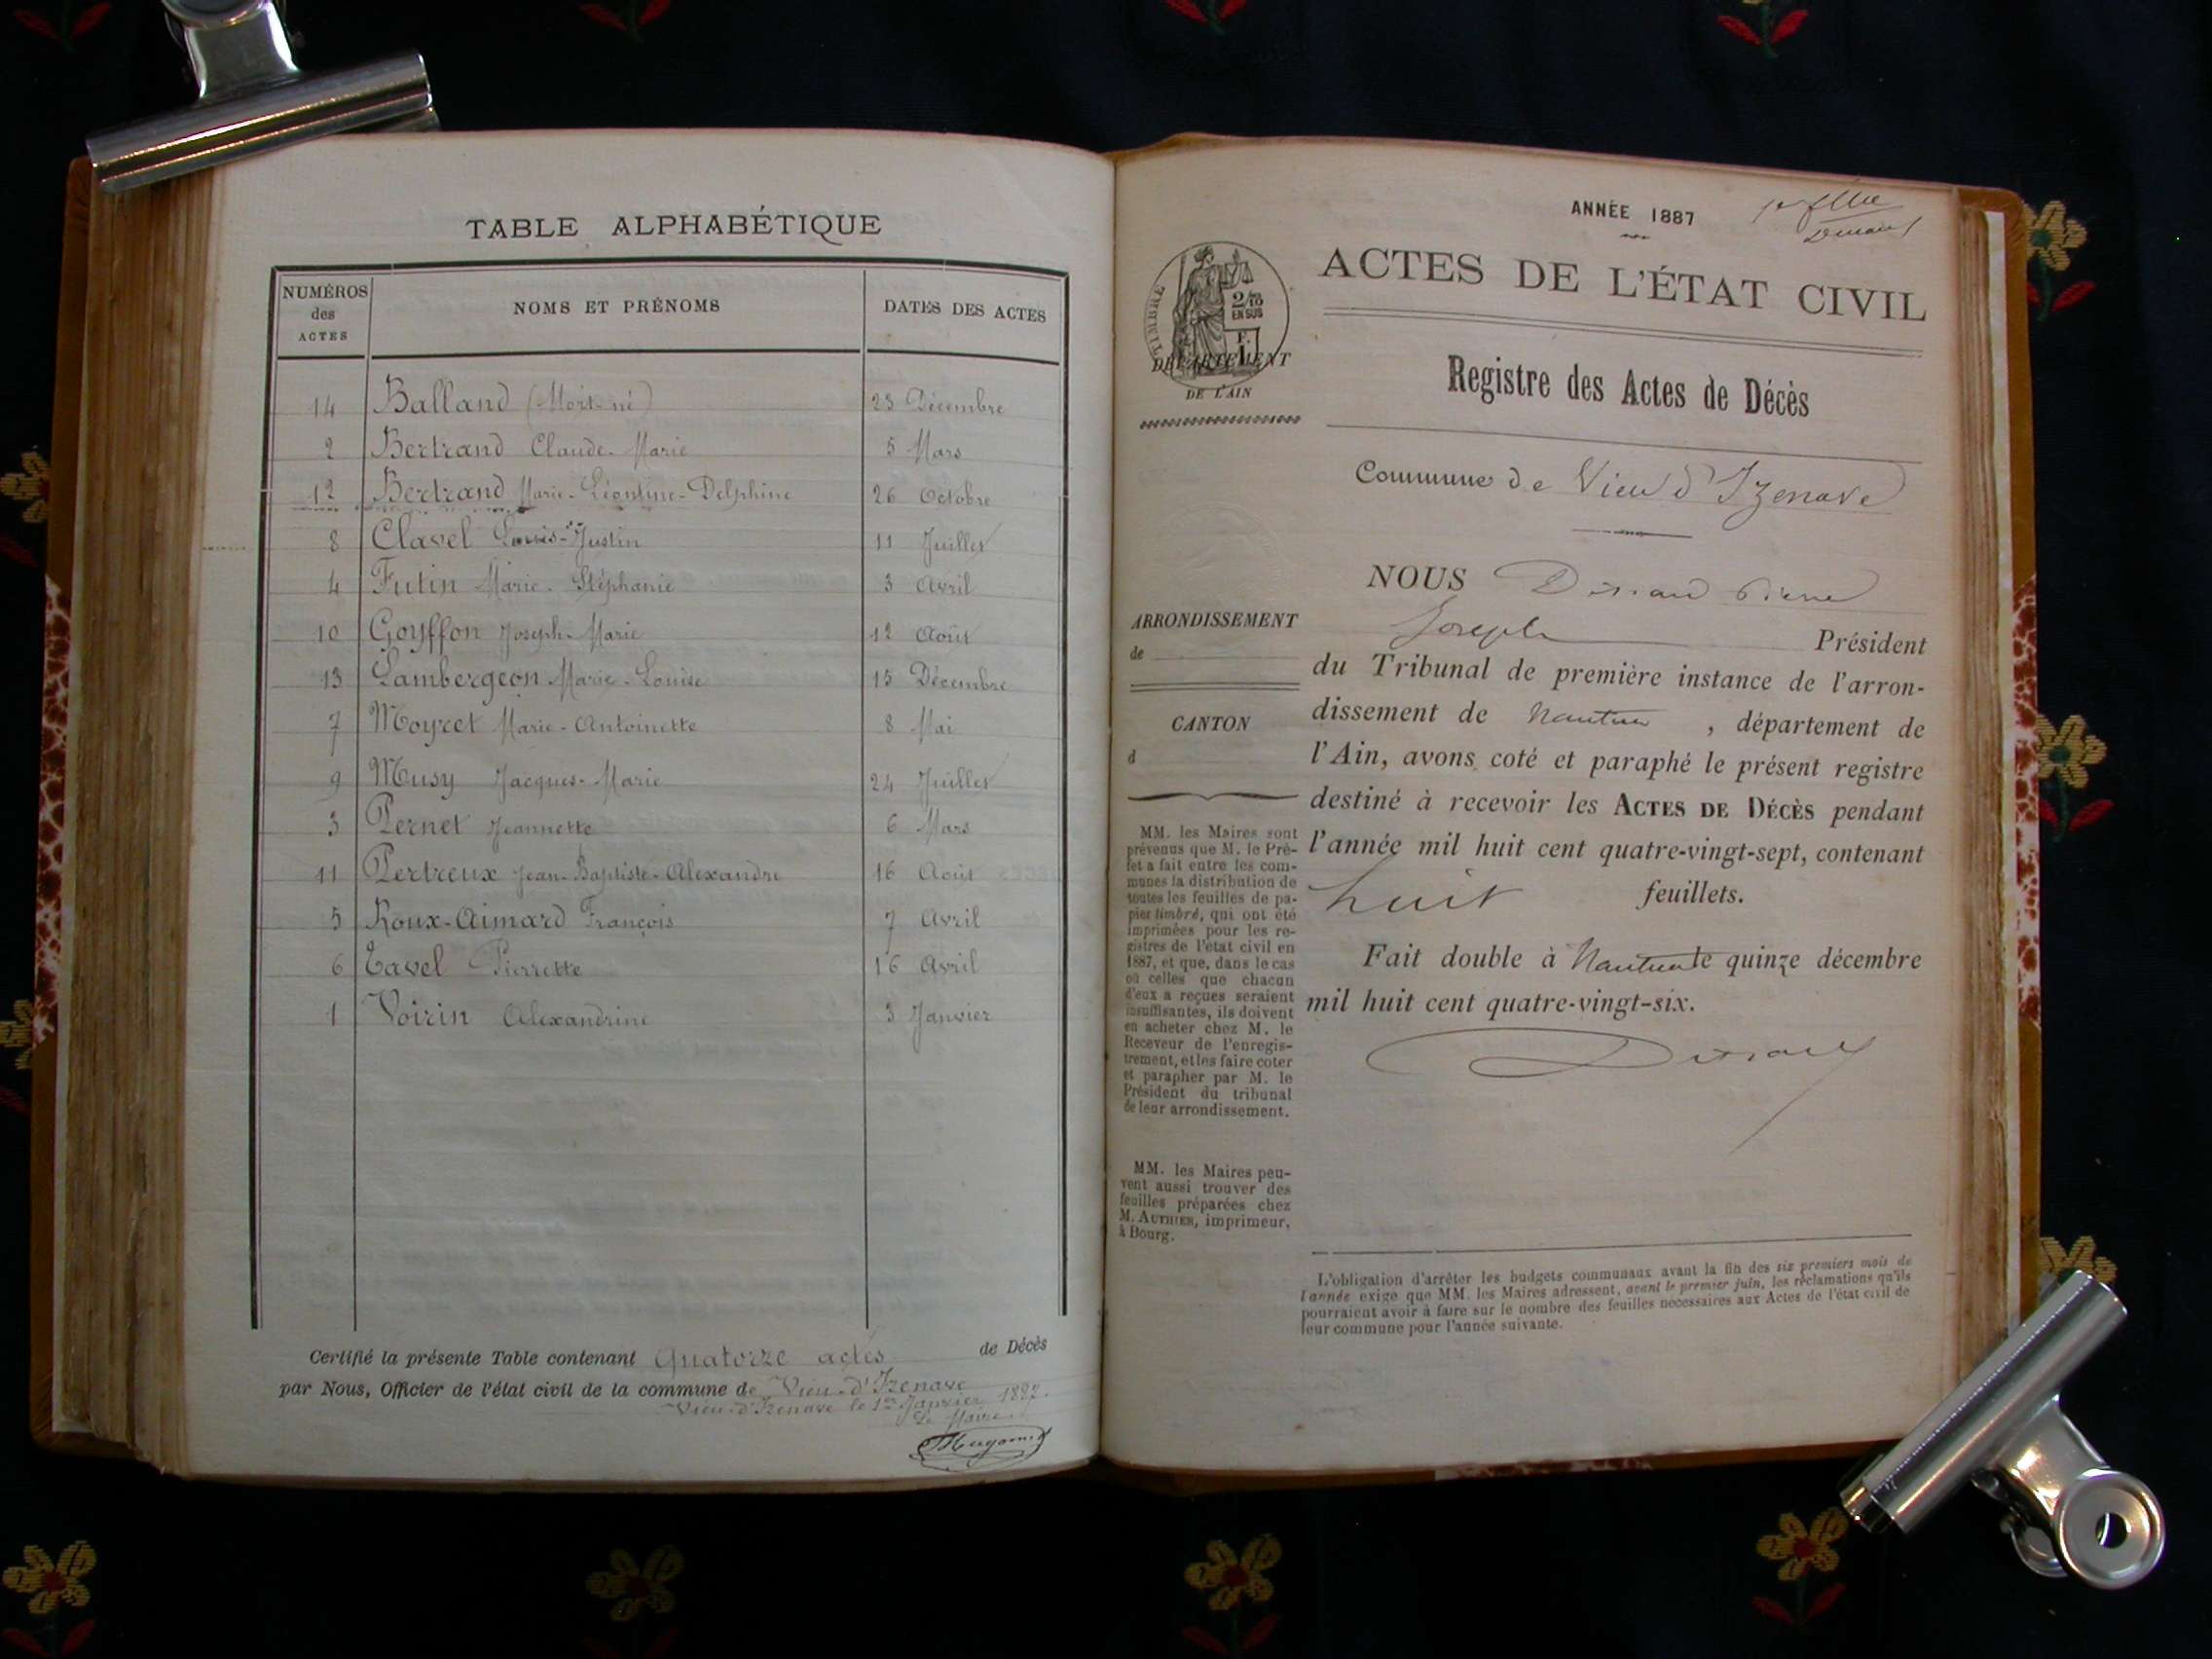 TABLE ALPHABÉTIQUE
NUMÉROS des ACTES NOMS ET PRÉNOMS DATES DES ACTES
14 Balland (Mort-né) 23 Décembre
2 Bertrand Claude-Marie 5 Mars
12 Bertrand Marie-Léontine-Delphine 26 Octobre
8 Clavel Louis-Justin 11 Juillet
4 Futin Marie-Stéphanie 3 Avril
10 Goyffon Joseph-Marie 12 Août
13 Lambergeon Marie-Louise 15 Décembre
7 Moyret Marie-Antoinette 8 Mai
9 Musy Jacques-Marie 24 Juillet
3 Pernet Jeannette 6 Mars
11 Pertreux Jean-Baptiste-Alexandre 16 Août
5 Roux-Aimard François 7 Avril
6 Tavel Pierrette 16 Avril
1 Voirin Alexandrine 3 Janvier
Certifié la présente Table contenant Quatorze actes de Décès
par Nous, Officier de l'état civil de la commune de Vieu-d'Izenave
Vieu-d'Izenave le 1er Janvier 1887.
Le Maire
ANNÉE 1887
ACTES DE L'ÉTAT CIVIL
TIMBRE
2/10
EN SUS
F.
1
DÉPARTEMENT
DE L'AIN
Registre des Actes de Décès
Commune de Vieu d'Izenave
NOUS
Joseph Président
du Tribunal de première instance de l'arron-
dissement de Nantua, département de
l'Ain, avons coté et paraphé le présent registre
destiné à recevoir les ACTES DE DÉCÈS pendant
l'année mil huit cent quatre-vingt-sept, contenant
huit feuillets.
Fait double à Nantua le quinze décembre
mil huit cent quatre-vingt-six.
ARRONDISSEMENT
de
CANTON
d
MM. les Maires sont
prévenus que M. le Pré-
fet a fait entre les com-
munes la distribution de
toutes les feuilles de pa-
pier timbré, qui ont été
imprimées pour les re-
gistres de l'état civil en
1887, et que, dans le cas
où celles que chacun
d'eux a reçues seraient
insuffisantes, ils doivent
en acheter chez M. le
Receveur de l'enregis-
trement, et les faire coter
et parapher par M. le
Président du tribunal
de leur arrondissement.
MM. les Maires peu-
vent aussi trouver des
feuilles préparées chez
M. AUTHIER, imprimeur,
à Bourg.
L'obligation d'arrêter les budgets communaux avant la fin des six premiers mois de
l'année exige que MM. les Maires adressent, avant le premier juin, les réclamations qu'ils
pourraient avoir à faire sur le nombre des feuilles nécessaires aux Actes de l'état civil de
leur commune pour l'année suivante.